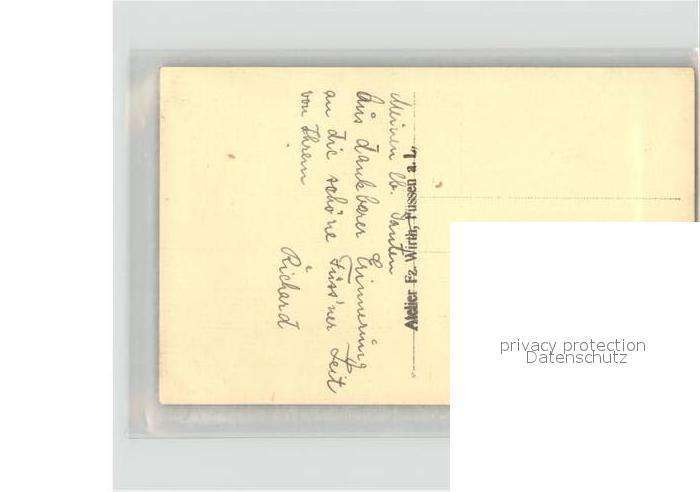 Meinen lb. Tanten
Aus dankbarer Erinnerung
an die schöne Füss'ner Zeit
von Ihrem
Richard
Atelier Fz. Wirth, Füssen a. L.
privacy protection
Datenschutz